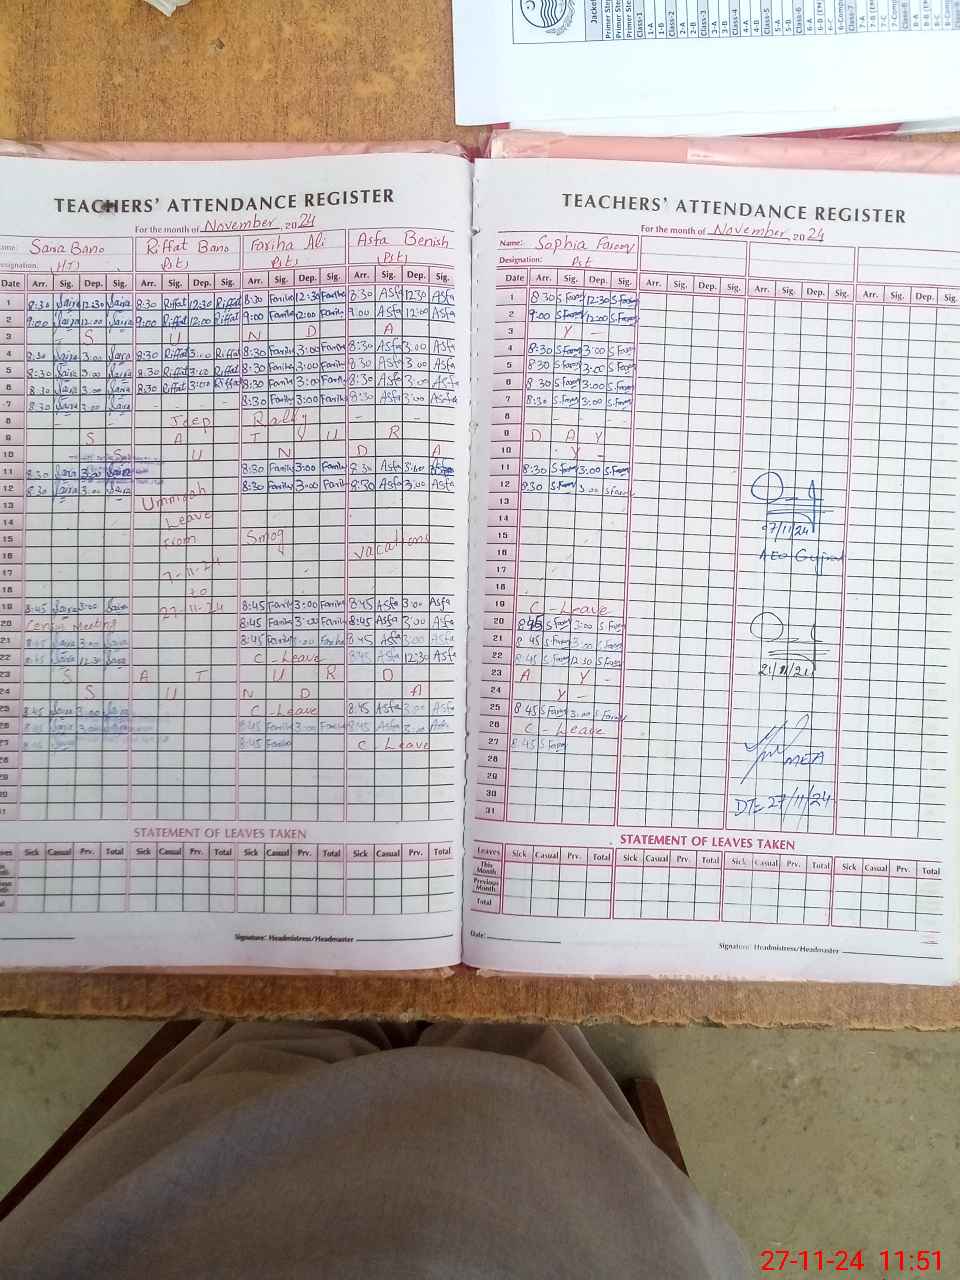 Jacket
Primer Step
Primer Step
Primer Step
Class-1
1-A
1-B
Class-2
2-A
2-B
Class-3
3-A
3-B
Class-4
4-A
4-B
Class-5
5-A
5-B
Class-6
6-A
6-C
Class-7
7-A
7-C
Class-8
8-A
8-C
TEACHERS' ATTENDANCE REGISTER
For the month of November, 2024
Riffat Bano Fariha Ali Asfa Benish
Designation:
Date Arr. Sig. Dep. Sig. Arr. Sig. Dep. Sig. Arr. Sig. Dep. Sig. Arr. Sig. Dep. Sig.
1 8:30 Saira 12:30 Saira 8:30 Riffat 12:30 Riffat 8:30 Fariha 12:30 Fariha 8:30 Asfa 12:30 Asfa
2 9:00 Saira 12:00 Saira 9:00 Riffat 12:00 Riffat 9:00 Fariha 12:00 Fariha 9:00 Asfa 12:00 Asfa
3 S U N D A
4 8:30 Saira 3:00 Saira 8:30 Riffat 3:00 Riffat 8:30 Fariha 3:00 Fariha 8:30 Asfa 3:00 Asfa
5 8:30 Saira 3:00 Saira 8:30 Riffat 3:00 Riffat 8:30 Fariha 3:00 Fariha 8:30 Asfa 3:00 Asfa
6 8:30 Saira 3:00 Saira 8:30 Riffat 3:00 Riffat 8:30 Fariha 3:00 Fariha 8:30 Asfa 3:00 Asfa
7 8:30 Saira 3:00 Saira 8:30 Fariha 3:00 Fariha 8:30 Asfa 3:00 Asfa
8 Jeep Rally
9 S A T U R
10 S U N D A
11 8:30 Saira 3:00 Saira 8:30 Fariha 3:00 Fariha 8:30 Asfa 3:00 Asfa
12 8:30 Saira 3:00 Saira 8:30 Fariha 3:00 Fariha 8:30 Asfa 3:00 Asfa
13 Ummrah
14 Leave
15 from Smog vacations
16
17 7-11-24
18 to
19 8:45 Saira 3:00 Saira 27-11-24 8:45 Fariha 3:00 Fariha 8:45 Asfa 3:00 Asfa
20 Meeting 8:45 Fariha 3:00 Fariha 8:45 Asfa 3:00 Asfa
21 8:45 Saira 3:00 Saira 8:45 Fariha 3:00 Fariha 8:45 Asfa 3:00 Asfa
22 8:45 Saira 12:30 Saira C - Leave 8:45 Asfa 12:30 Asfa
23 S A T U R D
24 S U N D A
25 8:45 Saira 3:00 Saira C - Leave 8:45 Asfa 3:00 Asfa
26 8:45 Saira 3:00 Saira 8:45 Fariha 3:00 Fariha 8:45 Asfa 3:00 Asfa
27 8:45 Saira 8:45 Fariha C - Leave
28
29
30
31
STATEMENT OF LEAVES TAKEN
Sick Casual Prv. Total Sick Casual Prv. Total Sick Casual Prv. Total Sick Casual Prv. Total
Signature: Headmistress/Headmaster
TEACHERS' ATTENDANCE REGISTER
For the month of November, 2024
Name: Sophia Farooq
Designation: Pst
Date Arr. Sig. Dep. Sig. Arr. Sig. Dep. Sig. Arr. Sig. Dep. Sig. Arr. Sig. Dep. Sig.
1 8:30 S Farooq 12:30 S.Farooq
2 9:00 S Farooq 12:00 S.Farooq
3 Y -
4 8:30 S Farooq 3:00 S Farooq
5 8:30 S Farooq 3:00 S Farooq
6 8:30 S Farooq 3:00 S.Farooq
7 8:30 S.Farooq 3:00 S.Farooq
8
9 D A Y -
10 Y -
11 8:30 S Farooq 3:00 S Farooq
12 8:30 S.Farooq 3:00 S Farooq
13
14
15 07/11/24
16 AEO Gujrat
17
18
19 C - Leave
20 8:45 S Farooq 3:00 S Farooq
21 8:45 S Farooq 3:00 S Farooq
22 8:45 S Farooq 12:30 S Farooq
23 A Y - 21/11/24
24 Y -
25 8:45 S Farooq 3:00 S Farooq
26 C - Leave
27 8:45 S Farooq
28 MEA
29
30 DTE 27/11/24
31
STATEMENT OF LEAVES TAKEN
Leaves Sick Casual Prv. Total Sick Casual Prv. Total Sick Casual Prv. Total Sick Casual Prv. Total
This Month
Previous Month
Total
Date:
Signature: Headmistress/Headmaster
27-11-24 11:51